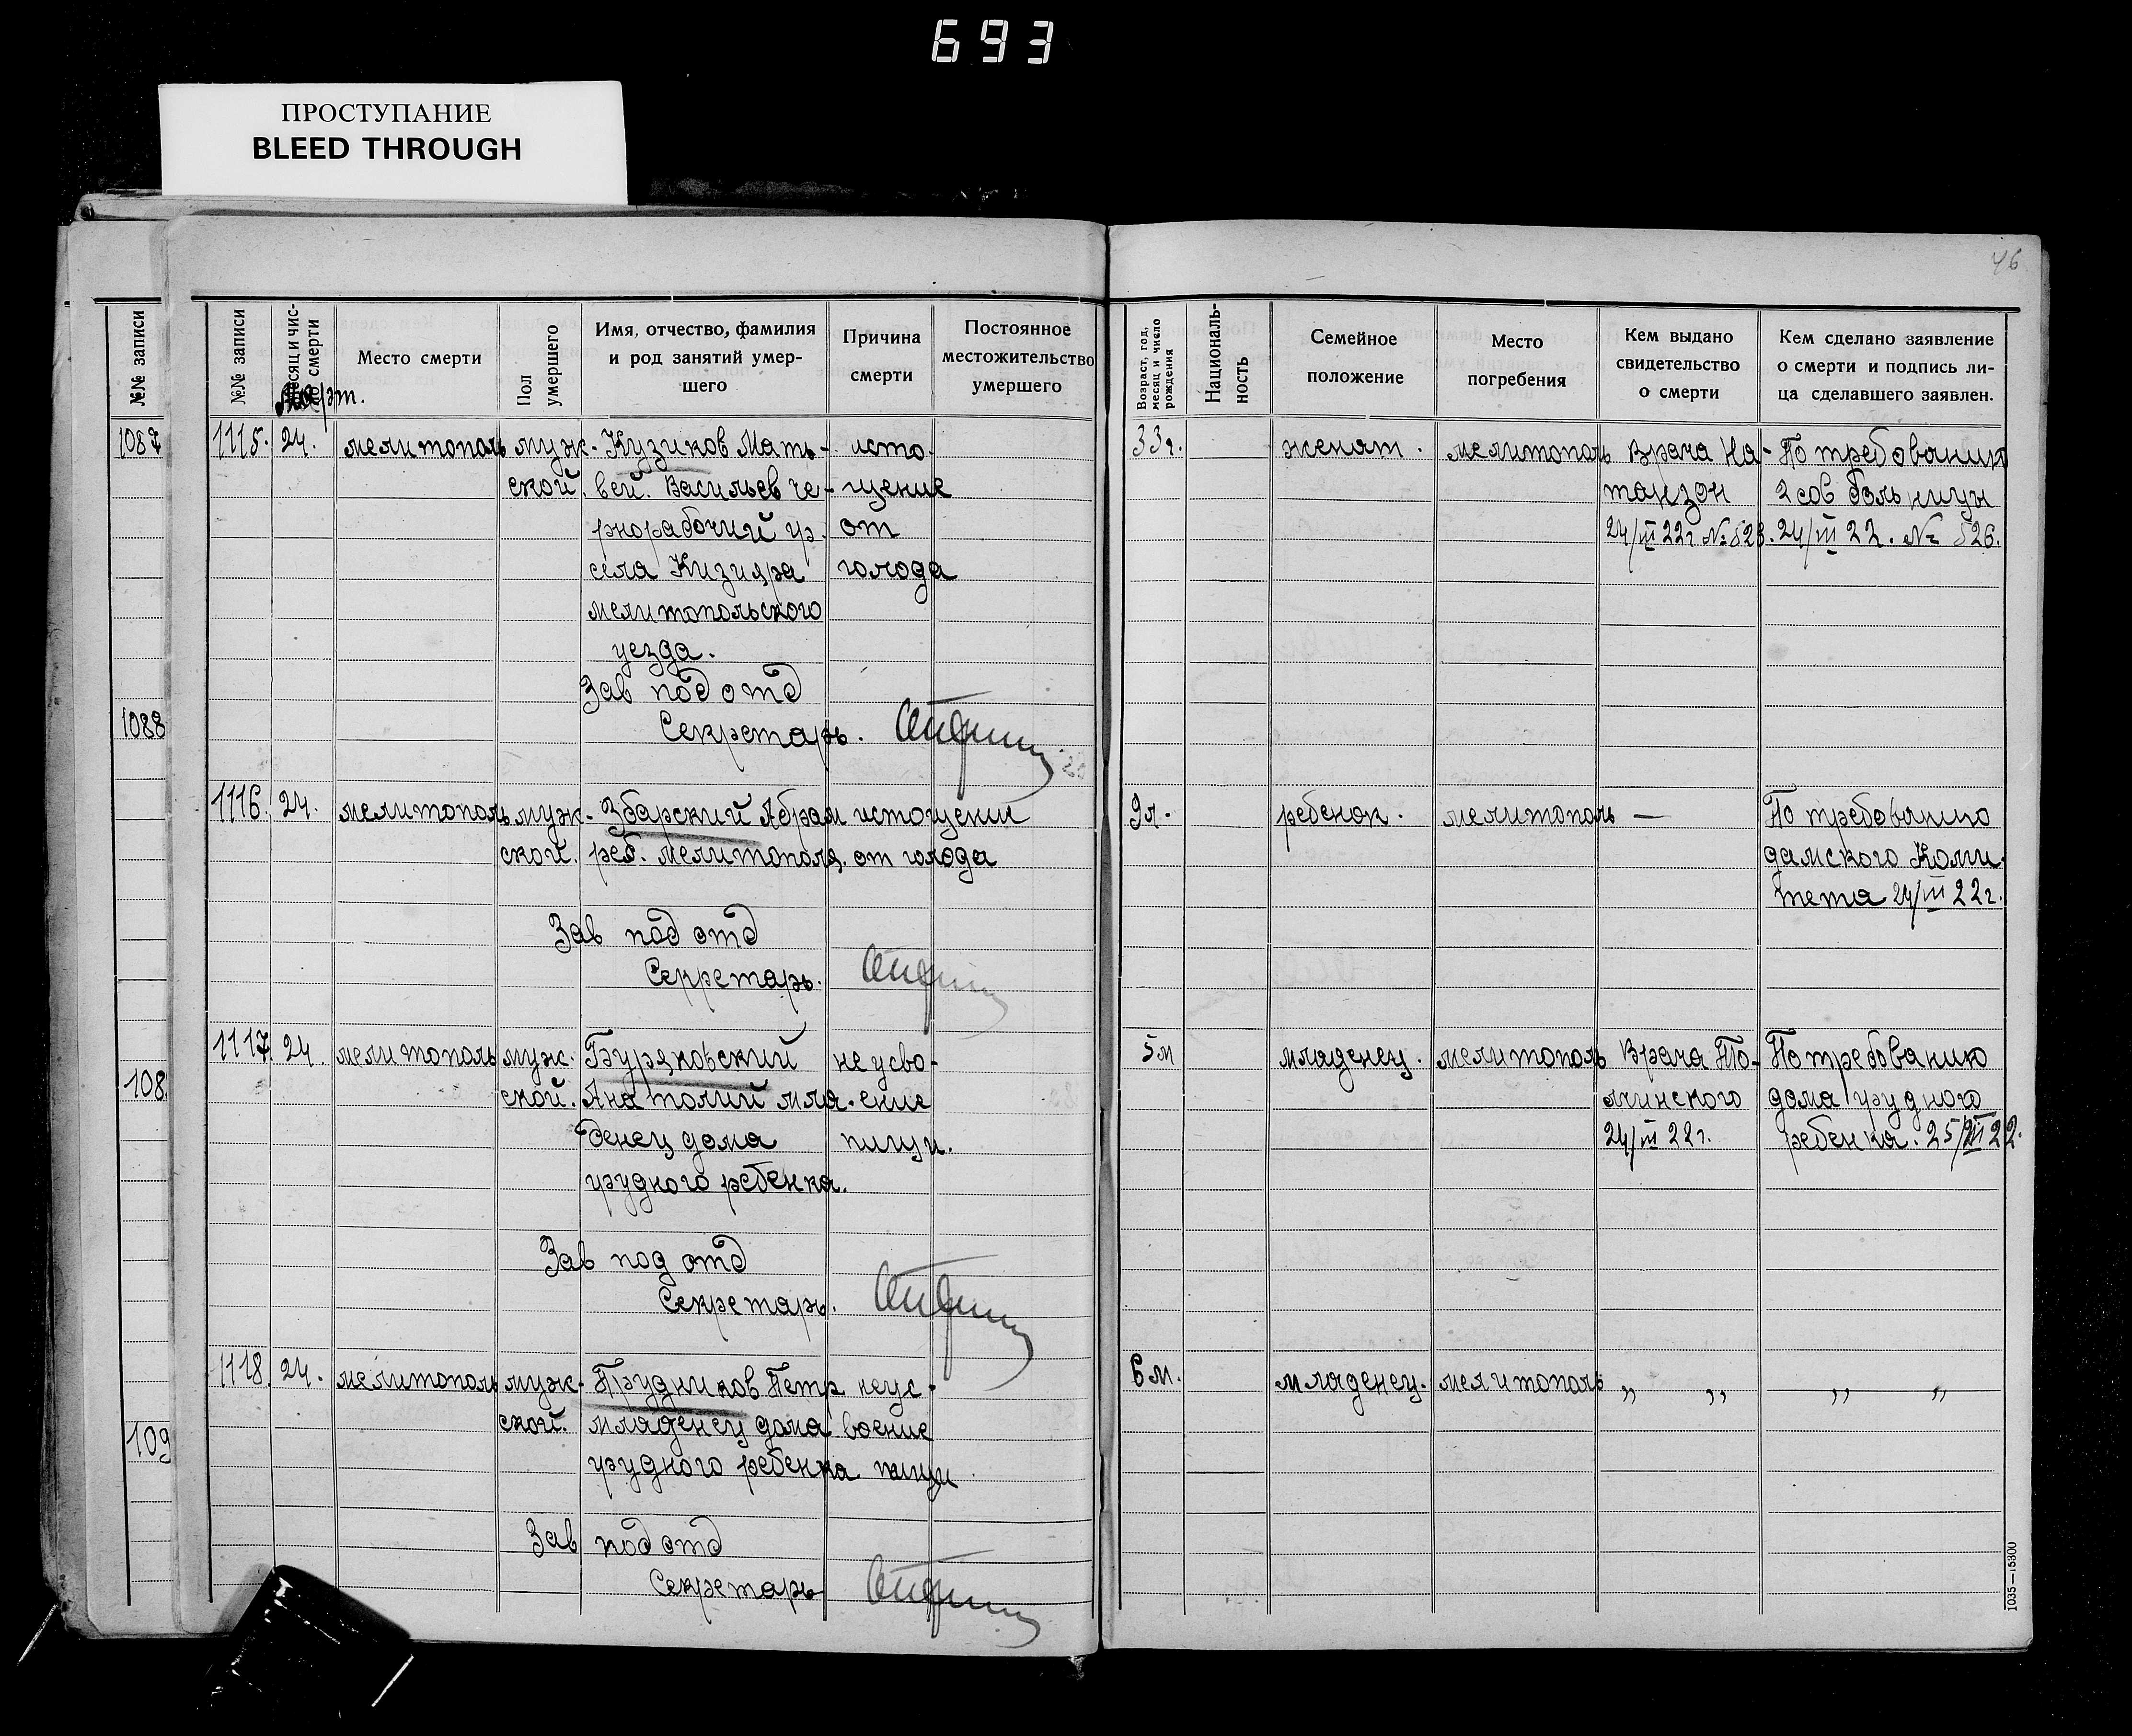 693
ПРОСТУПАНИЕ
BLEED THROUGH
46
№№ записи
1087
1088
108
109
№№ записи
Месяц и чис-
ло смерти
Март.
Место смерти
Пол
умершего
Имя, отчество, фамилия
и род занятий умер-
шего
Причина
смерти
Постоянное
местожительство
умершего
Возраст, год,
месяц и число
рождения
Националь-
ность
Семейное
положение
Место
погребения
Кем выдано
свидетельство
о смерти
Кем сделано заявление
о смерти и подпись ли-
ца сделавшего заявлен.
1115. 24. мелитополь муж- Кузиков Мать- исто- 33г. женат. мелитополь Врача На- По требованию
ской. вей. Васильев че- щение танзон 2 сов больницы
рнорабочий гр. от 24/III 22г № 526. 24/III 22. № 526.
села Кизияра голода
мелитопольского
уезда.
Зав под отд
Секретарь.
1116. 24. мелитополь муж- Збарский Абрам истощении 9л. ребенок. мелитополь — По требованию
ской. реб. мелитополя. от голода дамского Коми-
тета 24/III 22г.
Зав под отд
Секретарь.
1117 24. мелитополь муж- Буряковский не усво- 5м младенец. мелитополь Врача То- По требованию
ской. Анатолий мла- ение лчинского дома грудного
денец дома пищи. 24/III 22г. ребенка. 25/III 22.
грудного ребенка.
Зав под отд
Секретарь.
1118. 24. мелитополь муж- Прудников Петр неус- 6м. младенец. мелитополь „ „ „ „
ской. младенец дома воение
грудного ребенка пищи.
Зав под отд
Секретарь
1035—15800